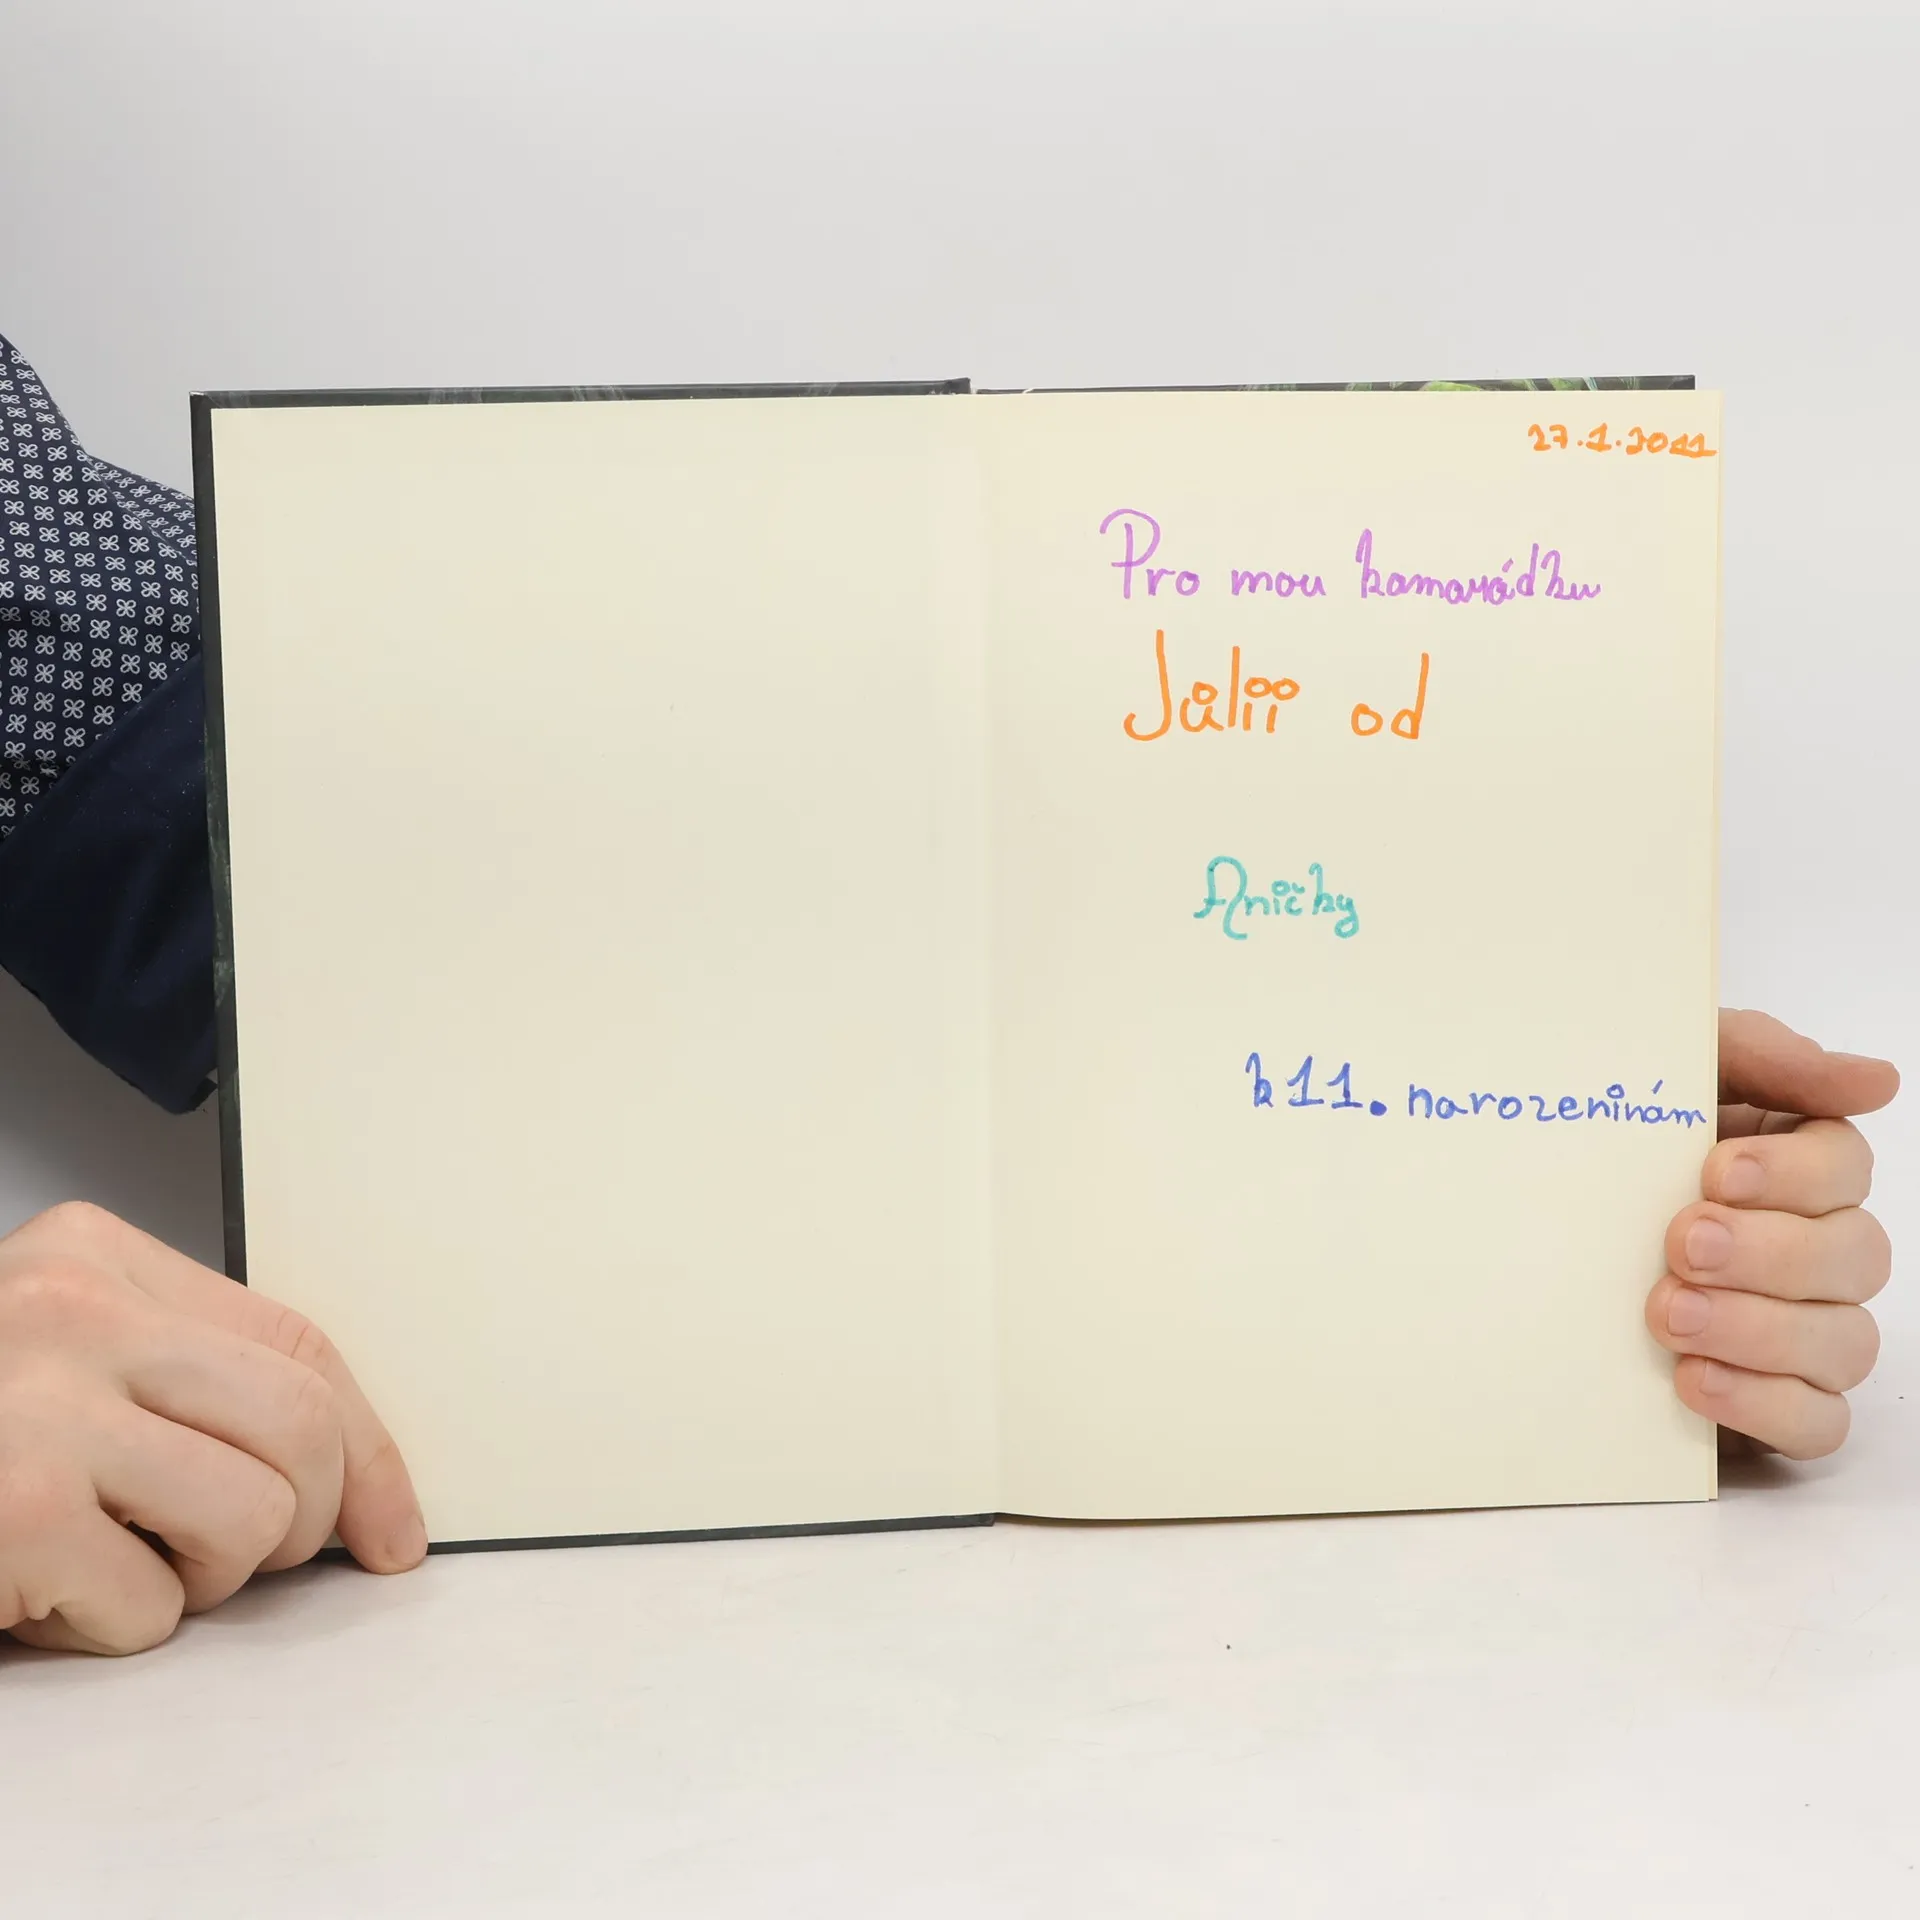 27.1.2011
Pro mou kamarádku
Júlii od
Aničky
k 11. narozeninám